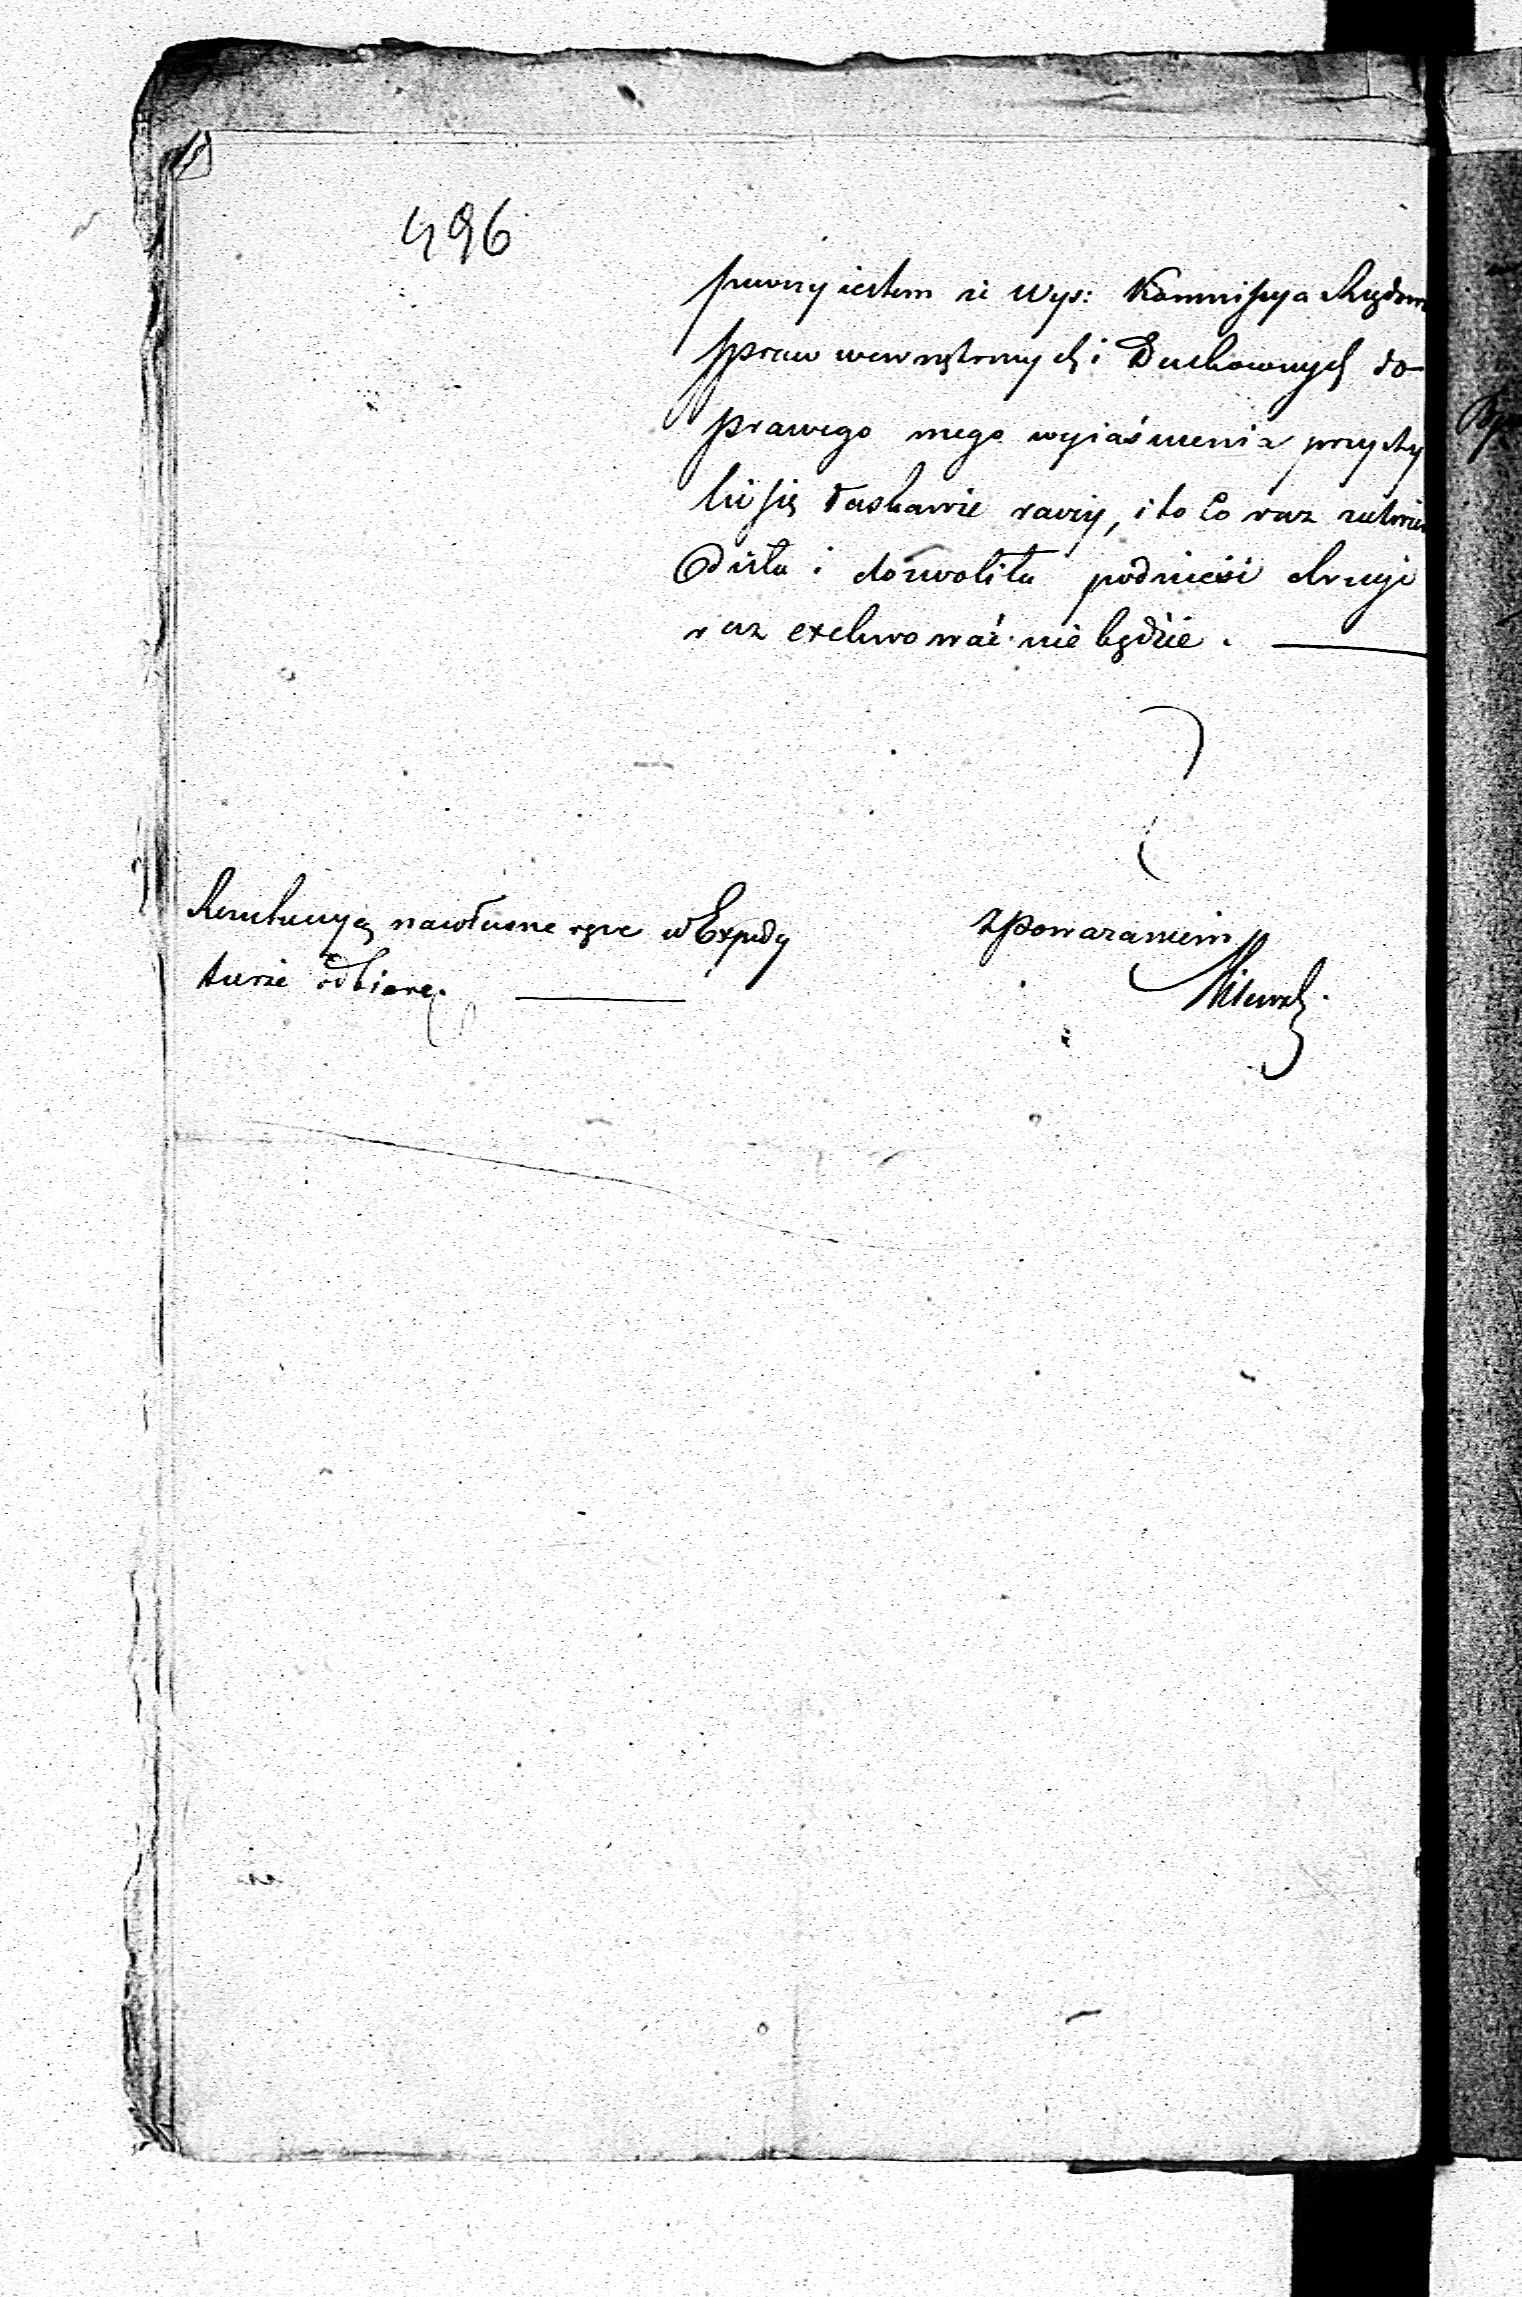 496
pewny iestem że Wys: Kommissya Rządow
spraw wewnętrznych i Duchownych do
prawego mego wyiaśnienia przychy
lić się łaskawie raczy, i to co raz zatwier
dziła i dozwoliła podnieść drugi
raz exelwować nie będzie.
Rezolucyą na własne ręce w Expedy
turze odbiorę.
z Poważaniem